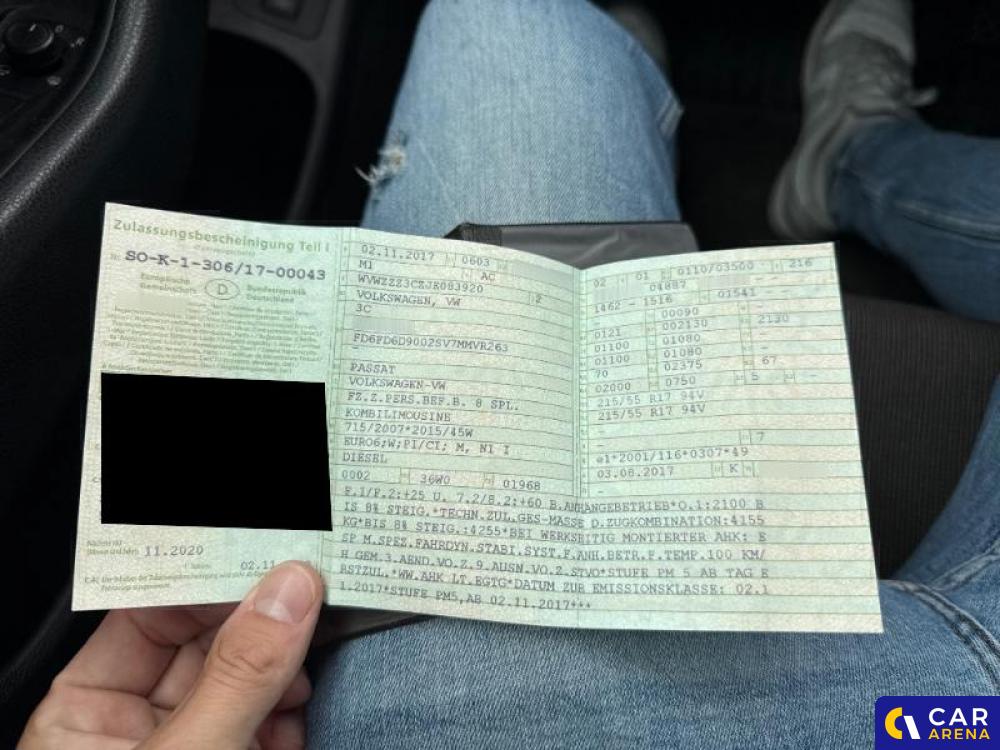 Zulassungsbescheinigung Teil I
Nr. SO-K-1-306/17-00043
Europäische Gemeinschaft
D
Bundesrepublik Deutschland
11.2020
02.11
02.11.2017 0603
M1 AC
WVWZZZ3CZJE083920 2
VOLKSWAGEN, VW
3C
FD6FD6D9002SV7MMVR263
–
PASSAT
VOLKSWAGEN-VW
FZ.Z.PERS.BEF.B. 8 SPL.
KOMBILIMOUSINE
715/2007*2015/45W
EURO6;W;PI/CI; M, N1 I
DIESEL
0002 36W0 01968
02 01 0110/03500 216
04887 –
1462 - 1516 01541
00090 –
0121 002130 2130
01100 01080 –
01100 01080
70 02375 67
02000 0750 5 –
215/55 R17 94V
215/55 R17 94V
–
– 7
e1*2001/116*0307*49
03.08.2017 K
–
F.1/F.2:+25 U. 7.2/8.2:+60 B.ANHANGEBETRIEB*O.1:2100 B
IS 8% STEIG.*TECHN.ZUL.GES-MASSE D.ZUGKOMBINATION:4155
KG*BIS 8% STEIG.:4255*BEI WERKSEITIG MONTIERTER AHK: E
SP M.SPEZ.FAHRDYN.STABI.SYST.F.ANH.BETR.F.TEMP.100 KM/
H GEM.3.AEND.VO.Z.9.AUSN.VO.Z.STVO*STUFE PM 5 AB TAG E
RSTZUL.*WW.AHK LT.EGTG*DATUM ZUR EMISSIONSKLASSE: 02.1
1.2017*STUFE PM5,AB 02.11.2017***
CAR
ARENA